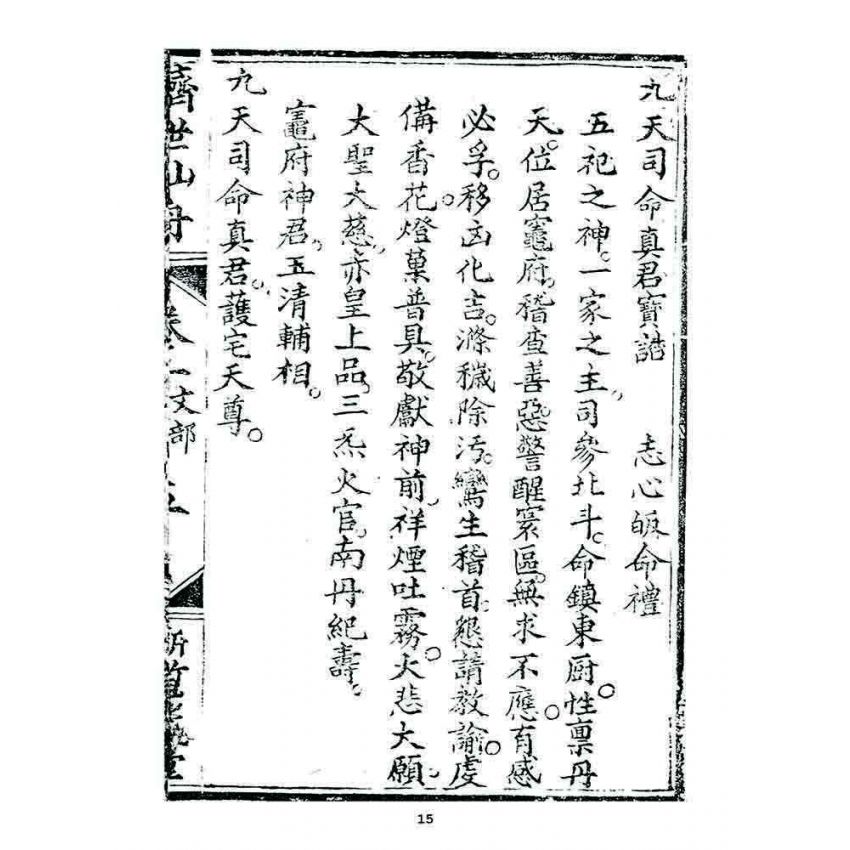 九天司命真君寶誥　志心皈命禮
五祀之神。一家之主。司參北斗。命鎮東厨。性禀丹
天。位居竈府。稽查善惡。警醒寰區。無求不應。有感
必孚。移凶化吉。滌穢除污。鸞生稽首。懇請教諭。虔
備香花。燈菓普具。敬獻神前。祥煙吐霧。大悲大願。
大聖大慈。赤皇上品。三炁火官。南丹紀壽。
竈府神君。玉清輔相。
九天司命真君。護宅天尊。
濟世仙丹
卷一文部
15